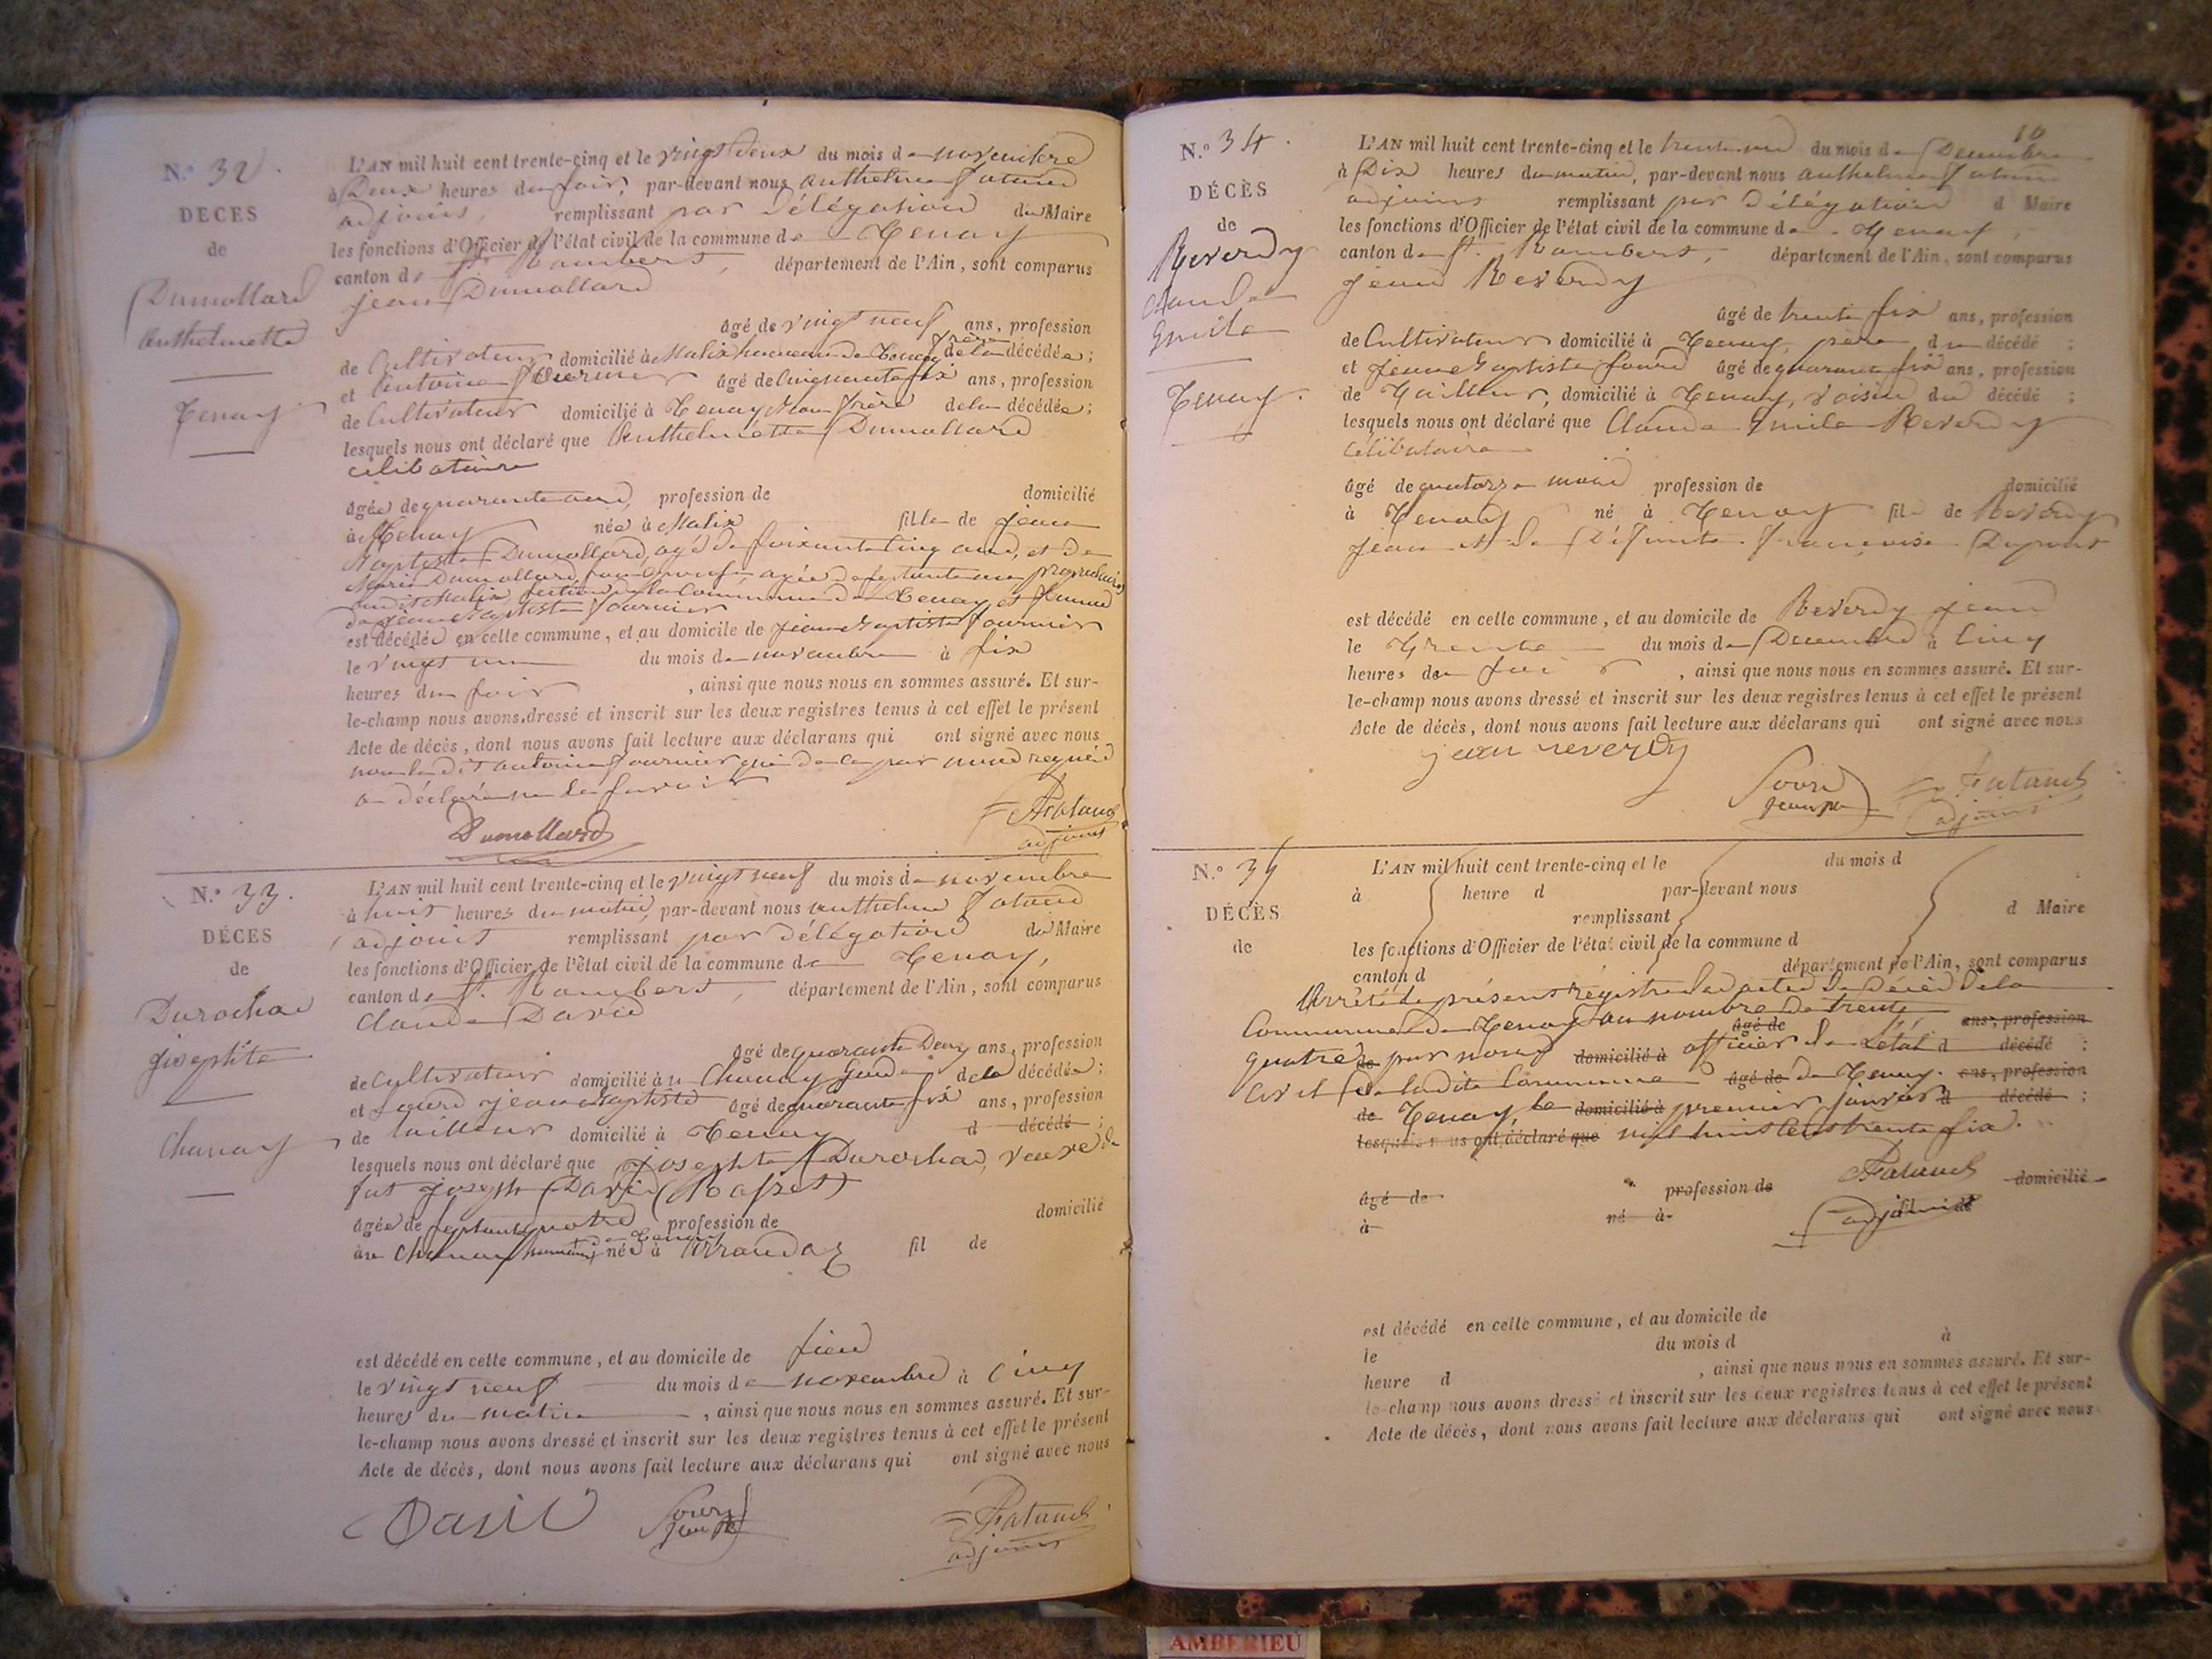 N.º 32.
DECES
de
Dumollard
Anthelmette
Tenay
L'AN mil huit cent trente-cinq et le vingt deux du mois de novembre
à Deux heures du soir, par-devant nous Anthelme fataud
adjoint, remplissant par Délégation du Maire
les fonctions d'Officier de l'état civil de la commune de Tenay
canton de St. Rambert, département de l'Ain, sont comparus
jean Dumollard
âgé de vingt neuf ans, profession
de Cultivateur domicilié à Malix hameau de Tenay frère de la décédée;
et Antoine fournier âgé de Cinquante six ans, profession
de Cultivateur domicilié à Tenay Beau frère de la décédée;
lesquels nous ont déclaré que Anthelmette Dumollard
célibataire
âgée de quarante ans, profession de domicilié
à Tenay née à Malix fille de jean
Baptiste Dumollard, agé de soixante cinq ans, et de
Marie Dumollard, agée de septante ans propriétaires
audit Malix, section de la Commune de Tenay et femme
de jean Baptiste fournier
est décédée en cette commune, et au domicile de jean Baptiste fournier
le vingt un du mois de novembre à six
heures du soir, ainsi que nous nous en sommes assuré. Et sur-
le-champ nous avons dressé et inscrit sur les deux registres tenus à cet effet le présent
Acte de décès, dont nous avons fait lecture aux déclarans qui ont signé avec nous
non le dit antoine fournier qui de ce par nous requis
a déclaré ne le savoir
Dumollard
fataud
adjoint
N.º 33.
DÉCES
de
Durochat
josephte
Chanay
L'AN mil huit cent trente-cinq et le vingt neuf du mois de novembre
à huit heures du matin, par-devant nous anthelme fataud
adjoint remplissant par délégation du Maire
les fonctions d'Officier de l'état civil de la commune de Tenay,
canton de St. Rambert, département de l'Ain, sont comparus
Claude David
âgé de quarante Deux ans, profession
de Cultivateur domicilié à Chanay de la décédée;
et fouré jean Baptiste âgé de quarante six ans, profession
de tailleur domicilié à Tenay d décédé;
lesquels nous ont déclaré que josephte Durochat, veuve de
fut joseph David
âgée de septante quatre profession de domicilié
à Chanay hameau de Tenay née à Arrandaz fil de
est décédé en cette commune, et au domicile de sien
le vingt neuf du mois de novembre à Cinq
heures du matin, ainsi que nous nous en sommes assuré. Et sur-
le-champ nous avons dressé et inscrit sur les deux registres tenus à cet effet le présent
Acte de décès, dont nous avons fait lecture aux déclarans qui ont signé avec nous
David
fataud
adjoint
10
N.º 34.
DÉCÈS
de
Reverdy
Claude
Emile
Tenay.
L'AN mil huit cent trente-cinq et le trente un du mois de Decembre
à Dix heures du matin, par-devant nous anthelme fataud
adjoint remplissant par délégation d Maire
les fonctions d'Officier de l'état civil de la commune de Tenay,
canton de St. Rambert, département de l'Ain, sont comparus
jean Reverdy
âgé de trente six ans, profession
de Cultivateur domicilié à Tenay, père du décédé;
et jean Baptiste fouré âgé de quarante six ans, profession
de Tailleur, domicilié à Tenay, voisin du décédé;
lesquels nous ont déclaré que Claude Emile Reverdy
Célibataire
âgé de quatorze mois profession de domicilié
à Tenay né à Tenay fils de Reverdy
jean et de Défunte françoise Dupont
est décédé en cette commune, et au domicile de Reverdy jean
le Trente du mois de Decembre à Cinq
heures du soir, ainsi que nous nous en sommes assuré. Et sur-
le-champ nous avons dressé et inscrit sur les deux registres tenus à cet effet le présent
Acte de décès, dont nous avons fait lecture aux déclarans qui ont signé avec nous
jean reverdy
fataud
adjoint
N.º 35
DÉCÈS
de
L'AN mil huit cent trente-cinq et le du mois d
à heure d par-devant nous
remplissant d Maire
les fonctions d'Officier de l'état civil de la commune d
canton d département de l'Ain, sont comparus
Arrêté le présent régistre des actes de Décès de la
Commune de Tenay au nombre de trente
âgé de ans, profession
quatre de par nous domicilié à officier de L'état d décédé;
Civil de ladite Commune âgé de de Tenay. ans, profession
de Tenay le domicilié à premier janvier d décédé;
lesquels nous ont déclaré que mil huit Cent trente six.
fataud
âgé de profession de domicilié
à né à adjoint fil de
est décédé en cette commune, et au domicile de
le du mois d à
heure d, ainsi que nous nous en sommes assuré. Et sur-
le-champ nous avons dressé et inscrit sur les deux registres tenus à cet effet le présent
Acte de décès, dont nous avons fait lecture aux déclarans qui ont signé avec nous
AMBERIEU